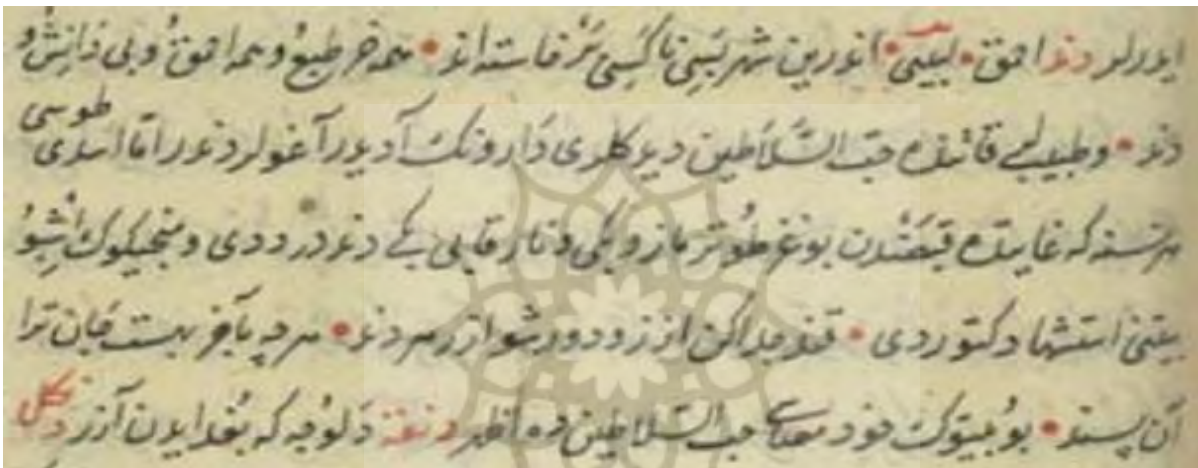 ایدرلر دند احمق • لبیبی • اندرین شهر بسی ناکسی برخاسته‌اند • همه خر طبع و همه احمق و بی دانش و
دند • و طبیبلر قاتنده حب السلاطین دیدکلری دارونک آدیدر آغولر دندر امّا اسدی طوسی
هر نسنه که غایتده قبضدن بوغز طوتر مازو کبی و نار قابی کبی دندر دردی و منجیکوک اشبو
بیتنی استشهاد کتوردی • قند جدا کن از زو دور شو از زهر دند • هر چه بآخر بهست جان ترا
آن پسند • بو بیتوک خود حب السلاطین ده اظهر دندنه دلوجه که بغدایدن آزر دنکل